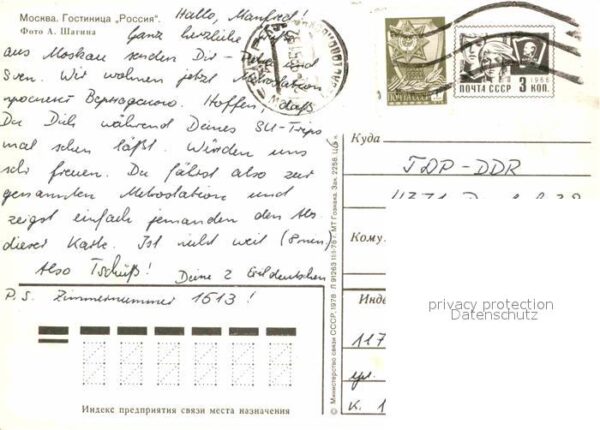 Москва. Гостиница „Россия".
Фото А. Шагина
Hallo, Manfred!
Ganz herzliche Grüße
aus Moskau senden Dir - und
Sven. Wir wohnen jetzt Metrostation
проспект Вернадского. Hoffen, daß
Du Dich während Deines SU-Trips
mal sehen läßt. Würden uns
sehr freuen. Du fährst also zur
genannten Metrostation und
zeigst einfach jemanden den Abs.
dieser Karte. Ist nicht weit (8min)
Also Tschüß! Deine 2
P.S. Zimmernummer 1513!
Индекс предприятия связи места назначения
© Министерство связи СССР, 1978
МТ Гознака. Зак.
ПОЧТА СССР
1966
ПОЧТА СССР 3 КОП.
Куда
ГДР-DDR
Кому
Инде
117
ул.
к. 1
privacy protection
Datenschutz